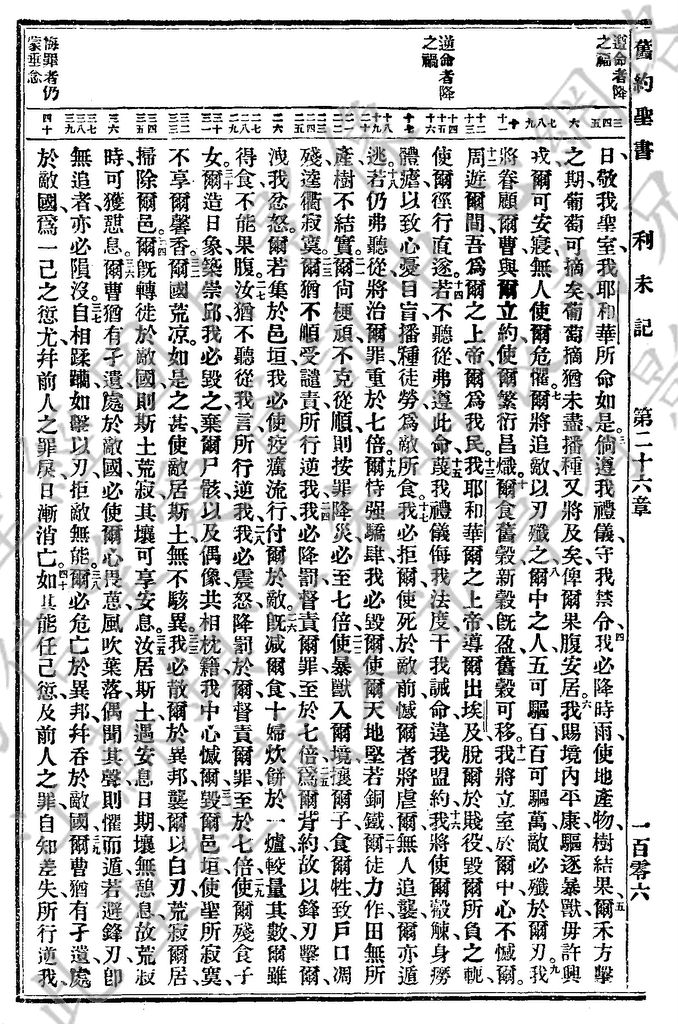 舊約聖書 利未記 第二十六章 一百零六
遵命者降之福
逆命者降之禍
悔罪者仍蒙垂念
日、敬我聖室、我耶和華所命如是。倘遵我禮儀、守我禁令、我必降時雨、使地產物、樹結果、爾禾方擊
之期、葡萄可摘矣、葡萄摘猶未盡、播種又將及矣、俾爾果腹安居。我賜境內平康、驅逐暴獸、毋許興
戎、爾可安寢、無人使爾危懼。爾將追敵、以刃殲之、爾中之人、五可驅百、百可驅萬、敵必殲於爾刃。我
將眷顧爾曹、與爾立約、使爾繁衍昌熾。爾食舊穀、新穀旣盈、舊穀可移。我將立室於爾中、心不憾爾。
周遊爾間、吾爲爾之上帝、爾爲我民。我耶和華爾之上帝、導爾出埃及、脫爾於賤役、毀爾所負之軛、
使爾徑行直遂。若不聽從、弗遵此命、蔑我禮儀、侮我法度、干我誡命、違我盟約、我將使爾觳觫、身癆
體瘧、以致心憂目盲、播種徒勞、爲敵所食。我必拒爾、使死於敵前、憾爾者將虐爾、無人追襲、爾亦遁
逃。若仍弗聽從、將治爾罪、重於七倍。爾恃强驕肆、我必毀爾、使爾天地堅若銅鐵、爾徒力作、田無所
產、樹不結實。爾尚梗頑、不克從順、則按罪降災、必至七倍、使暴獸入爾境、攘爾子、食爾牲、致戶口凋
殘、逵衢寂寞。爾猶不順受譴責、所行逆我、我必降罰、督責爾罪、至於七倍、爲爾背約、故以鋒刃擊爾、
洩我忿怒、爾若集於邑垣、我必使疫癘流行、付爾於敵。旣減爾食、十婦炊餅於一爐、較量其數、爾雖
得食、不能果腹。汝猶不聽從我言、所行逆我、我必震怒、降罰於爾、督責爾罪、至於七倍、使爾殘食子
女。爾造日象、築崇邱、我必毀之、棄爾尸骸、以及偶像、共相枕籍、我中心憾爾、毀爾邑垣、使聖所寂寞、
不享爾馨香。爾國荒凉、如是之甚、使敵居斯土、無不駭異。我必散爾於異邦、襲爾以白刃、荒寂爾居、
掃除爾邑。爾旣轉徙於敵國、則斯土荒寂、其壤可享安息、汝居斯土、遇安息日期、壤無憩息、故荒寂
時可獲憩息。爾曹猶有孑遺、處於敵國、必使爾心畏葸、風吹葉落、偶聞其聲、則懼而遁、若避鋒刃、卽
無追者、亦必隕沒。自相蹂躪、如擊以刃、拒敵無能。爾必危亡於異邦、幷吞於敵國、爾曹猶有孑遺、處
於敵國、爲一己之愆尤、幷前人之罪戾、日漸消亡。如其能任己愆、及前人之罪、自知差失、所行逆我、